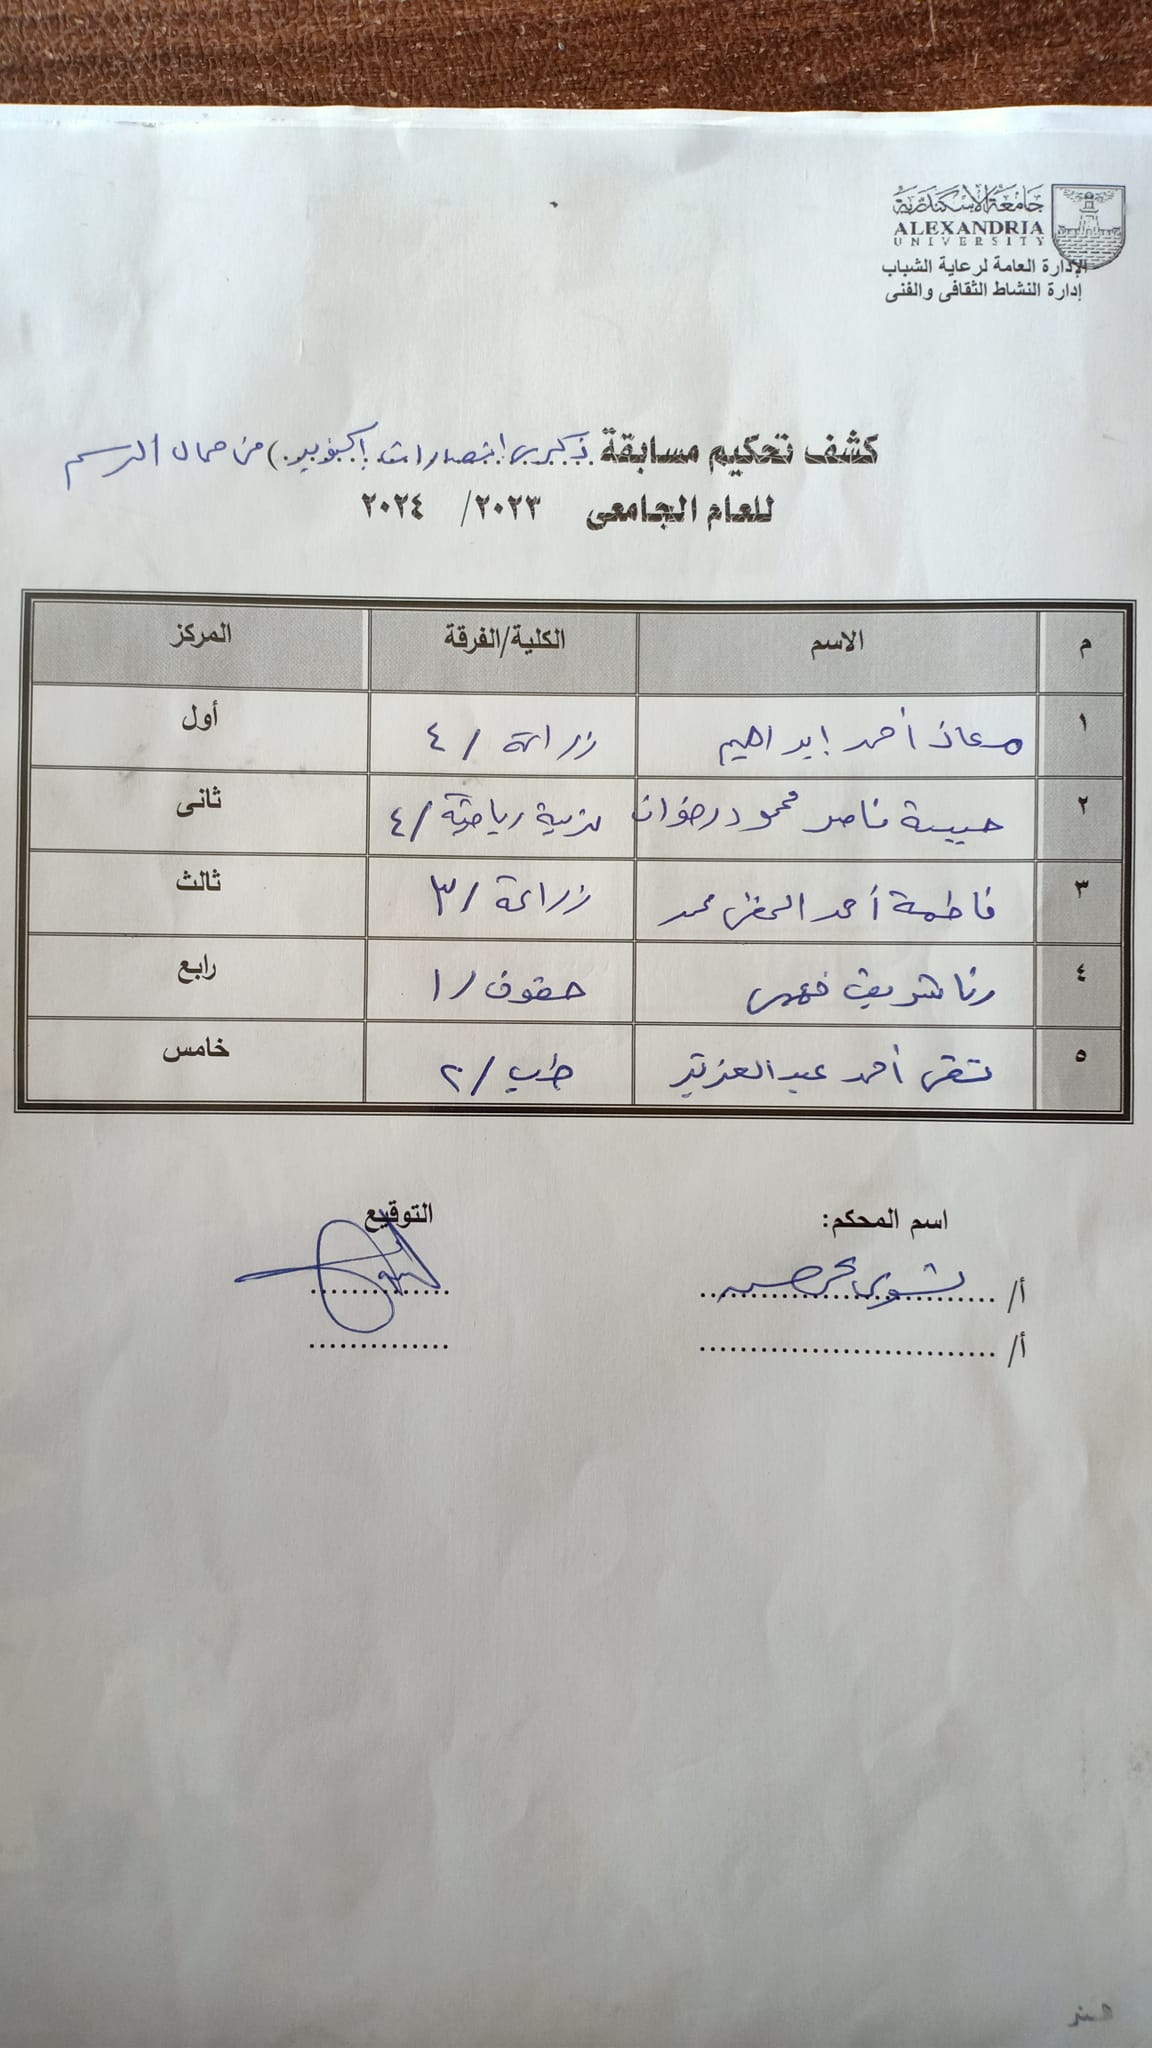 جامعة الإسكندرية
ALEXANDRIA
UNIVERSITY
الإدارة العامة لرعاية الشباب
إدارة النشاط الثقافى والفنى
كشف تحكيم مسابقة ذكرى انتصارات أكتوبر) من مجال الرسم
للعام الجامعى ٢٠٢٣/ ٢٠٢٤
م الاسم الكلية/الفرقة المركز
١ معاذ أحمد إبراهيم زراعة / ٤ أول
٢ حبيبة ناصر محمود رضوان تربية رياضية / ٤ ثانى
٣ فاطمة أحمد محمد زراعة / ٣ ثالث
٤ رنا شريف فهمى حقوق / ١ رابع
٥ تقى أحمد عبد العزيز طب / ٢ خامس
اسم المحكم: التوقيع
أ/
أ/